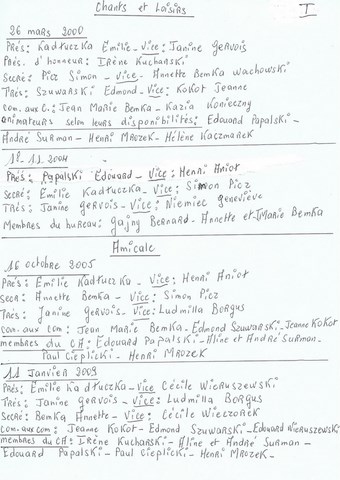 Chants et Loisirs
I
26 mars 2000
Prés: Kadłuczka Emilie - Vice: Janine Gervois
Prés. d'honneur: Irène Kucharski
Secré: Picz Simon - Vice - Annette Bemka Wachowski
Trés: Szuwarski Edmond - Vice: Kokot Jeanne
com. aux C.: Jean Marie Bemka - Kazia Konieczny
animateurs selon leurs disponibilités: Edouard Papalski -
André Surman - Henri Mrozek - Hélène Kaczmarek
18-11-2004
Prés: Papalski Edouard - Vice: Henri Aniot
Secré: Emilie Kadłuczka - Vice: Simon Picz
Trés: Janine Gervois - Vice: Niemiec Geneviève
Membres du bureau: Gajny Bernard - Annette et J Marie Bemka
Amicale
16 octobre 2005
Prés: Emilie Kadłuczka - Vice: Henri Aniot
Secr: Annette Bemka - Vice: Simon Picz
Trés: Janine Gervois - Vice: Ludmilla Borgus
Com. aux com: Jean Marie Bemka - Edmond Szuwarski - Jeanne Kokot
membres du CA: Edouard Papalski - Aline et André Surman -
Paul Cieplicki - Henri Mrozek
11 Janvier 2009
Prés: Emilie Kadłuczka - Vice Cécile Wieruszewski
Trés: Janine Gervois - Vice: Ludmilla Borgus
Secré: Bemka Annette - Vice: Cécile Wieczorek
Com. aux com: Jeanne Kokot - Edmond Szuwarski - Edouard Wieruszewski
membres du CA: Irène Kucharski - Aline et André Surman -
Edouard Papalski - Paul Cieplicki - Henri Mrozek -